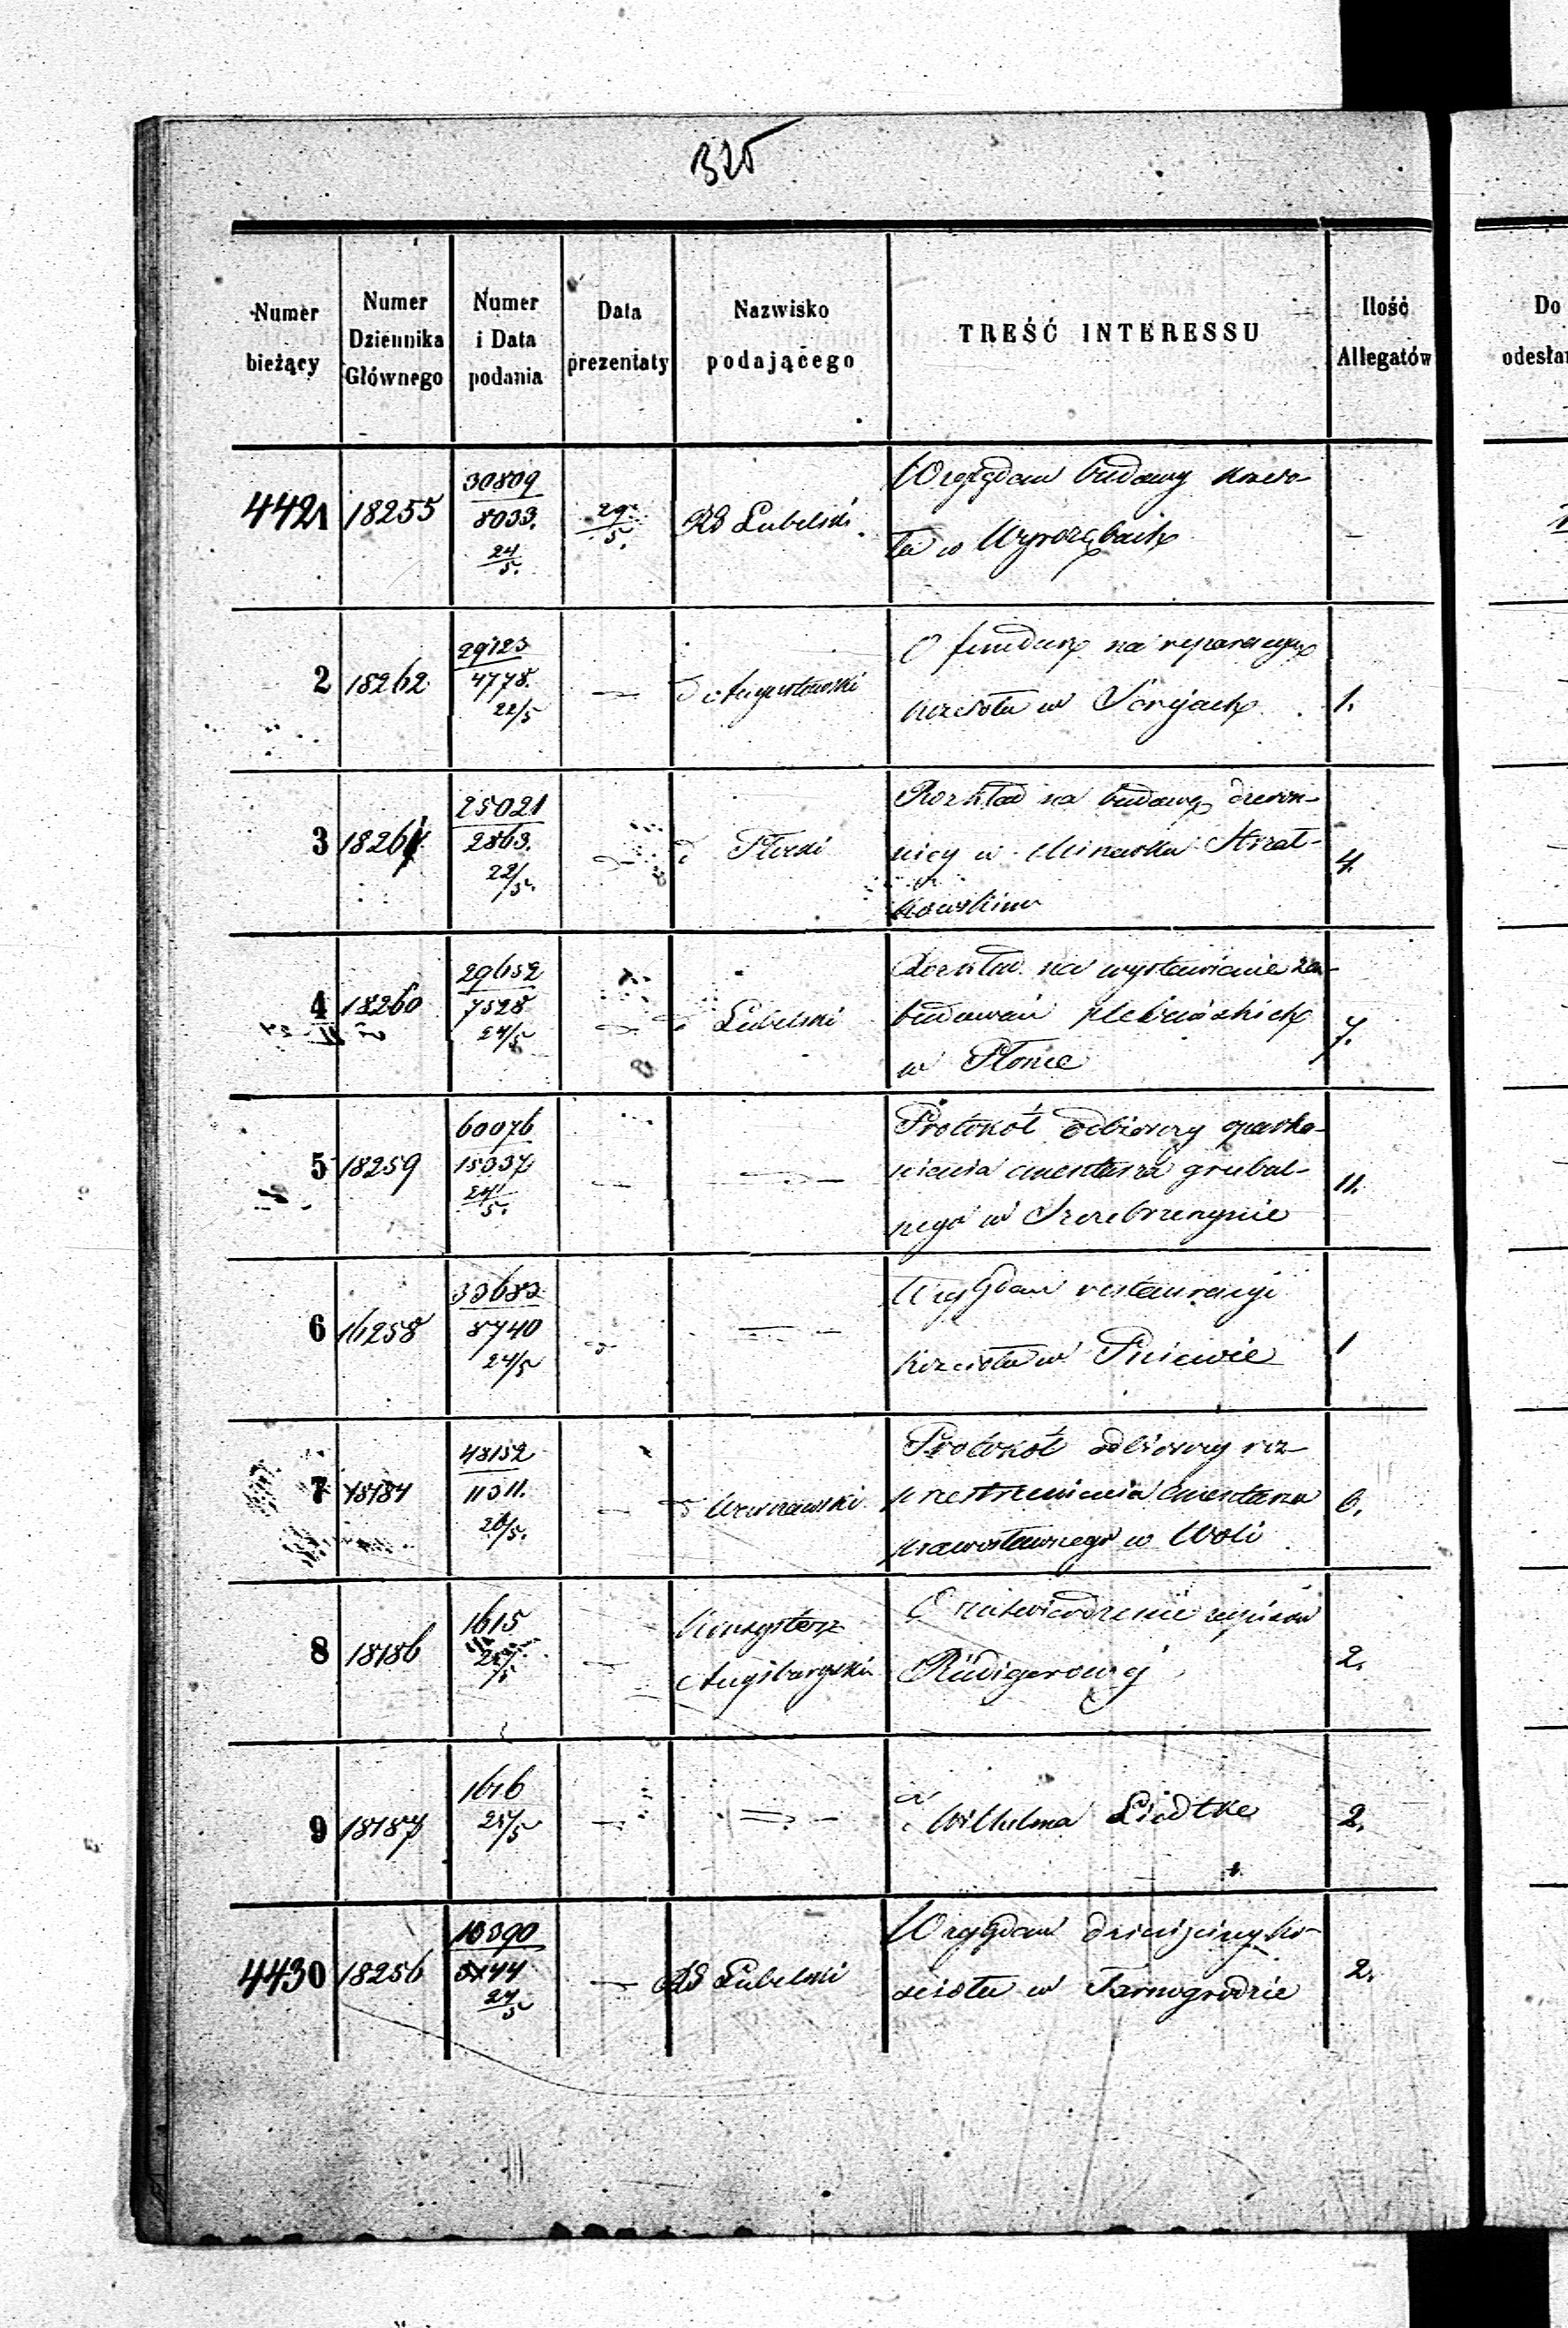 325
Numer bieżący
Numer Dziennika Głównego
Numer i Data podania
Data prezentaty
Nazwisko podającego
TREŚĆ INTERESSU
Ilość Allegatów
Do
odesłan
4421 18255 30809 / 8033. 24/5. 29/5. RG Lubelski Względem budowy kościo-
ła w Wyrozębach –
2 18262 29123 / 4778. 22/5 — d Augustowski O fundusz na reparacyę
kościoła w Serejach 1.
3 1826 25021 / 2863. 22/5. — d Płocki Rozkład na budowę dzwon-
nicy w Strzał-
kowskim 4.
4 18260 29652 / 7528 24/5 — d Lubelski Rozkład na wystawienie za-
budowań plebańskich
w Płonce 7.
5 18259 60076 / 15037 24/5. — — Protokół odbiorczy oparka-
nienia cmentarza grzebal-
nego w Szczebrzeszynie 11.
6 18258 33683 / 8740 24/5 — — Względem restauracyi
kościoła w Pniewie 1
7 18184 48152 / 11311. 26/5. — d Warszawski Protokół odbiorczy roz-
przestrzenienia cmentarza
prawosławnego w Woli 6.
8 18186 1615 25/5 — Konsystorz
Augsburgski O zatwierdzenie zapisów
Rüdigerowej 2.
9 18187 1616 25/5 — — d° Wilhelma Liedtke 2.
4430 18256 10390 / 3744 24/5 — RG Lubelski Względem dziesięciny ko-
ścioła w Tarnogrodzie 2.